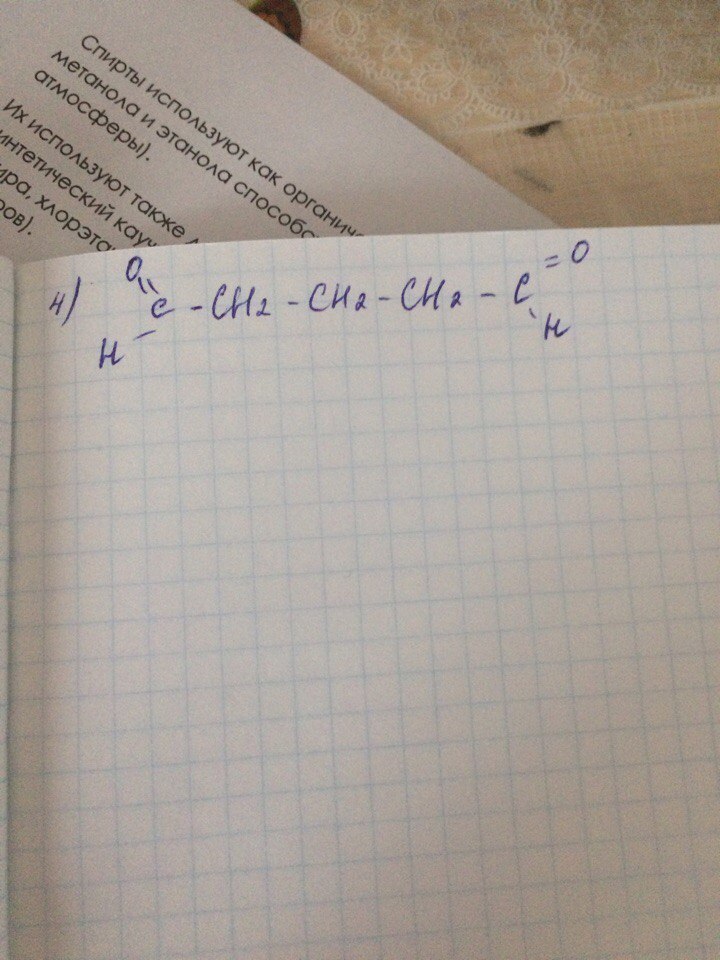 Спирты используют как органиче
метанола и этанола способс
атмосферы).
Их используют также
интетический кауч
ира, хлорэта
ров).
4) O = C - CH2 - CH2 - CH2 - C = O
H H